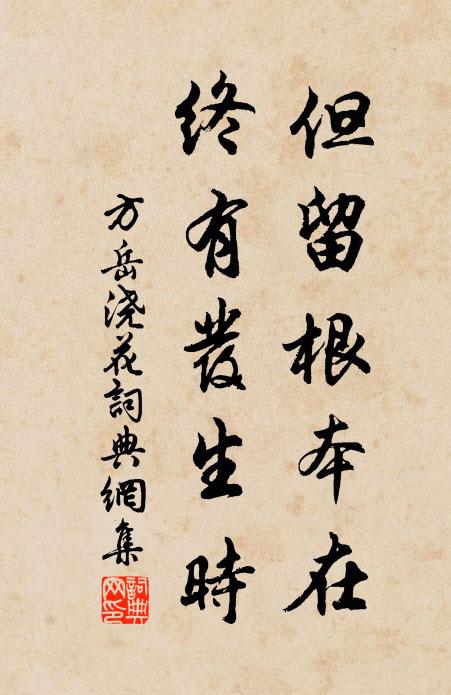 但留根本在
終有發生時
方岳浇花詞典網集
詞典网印